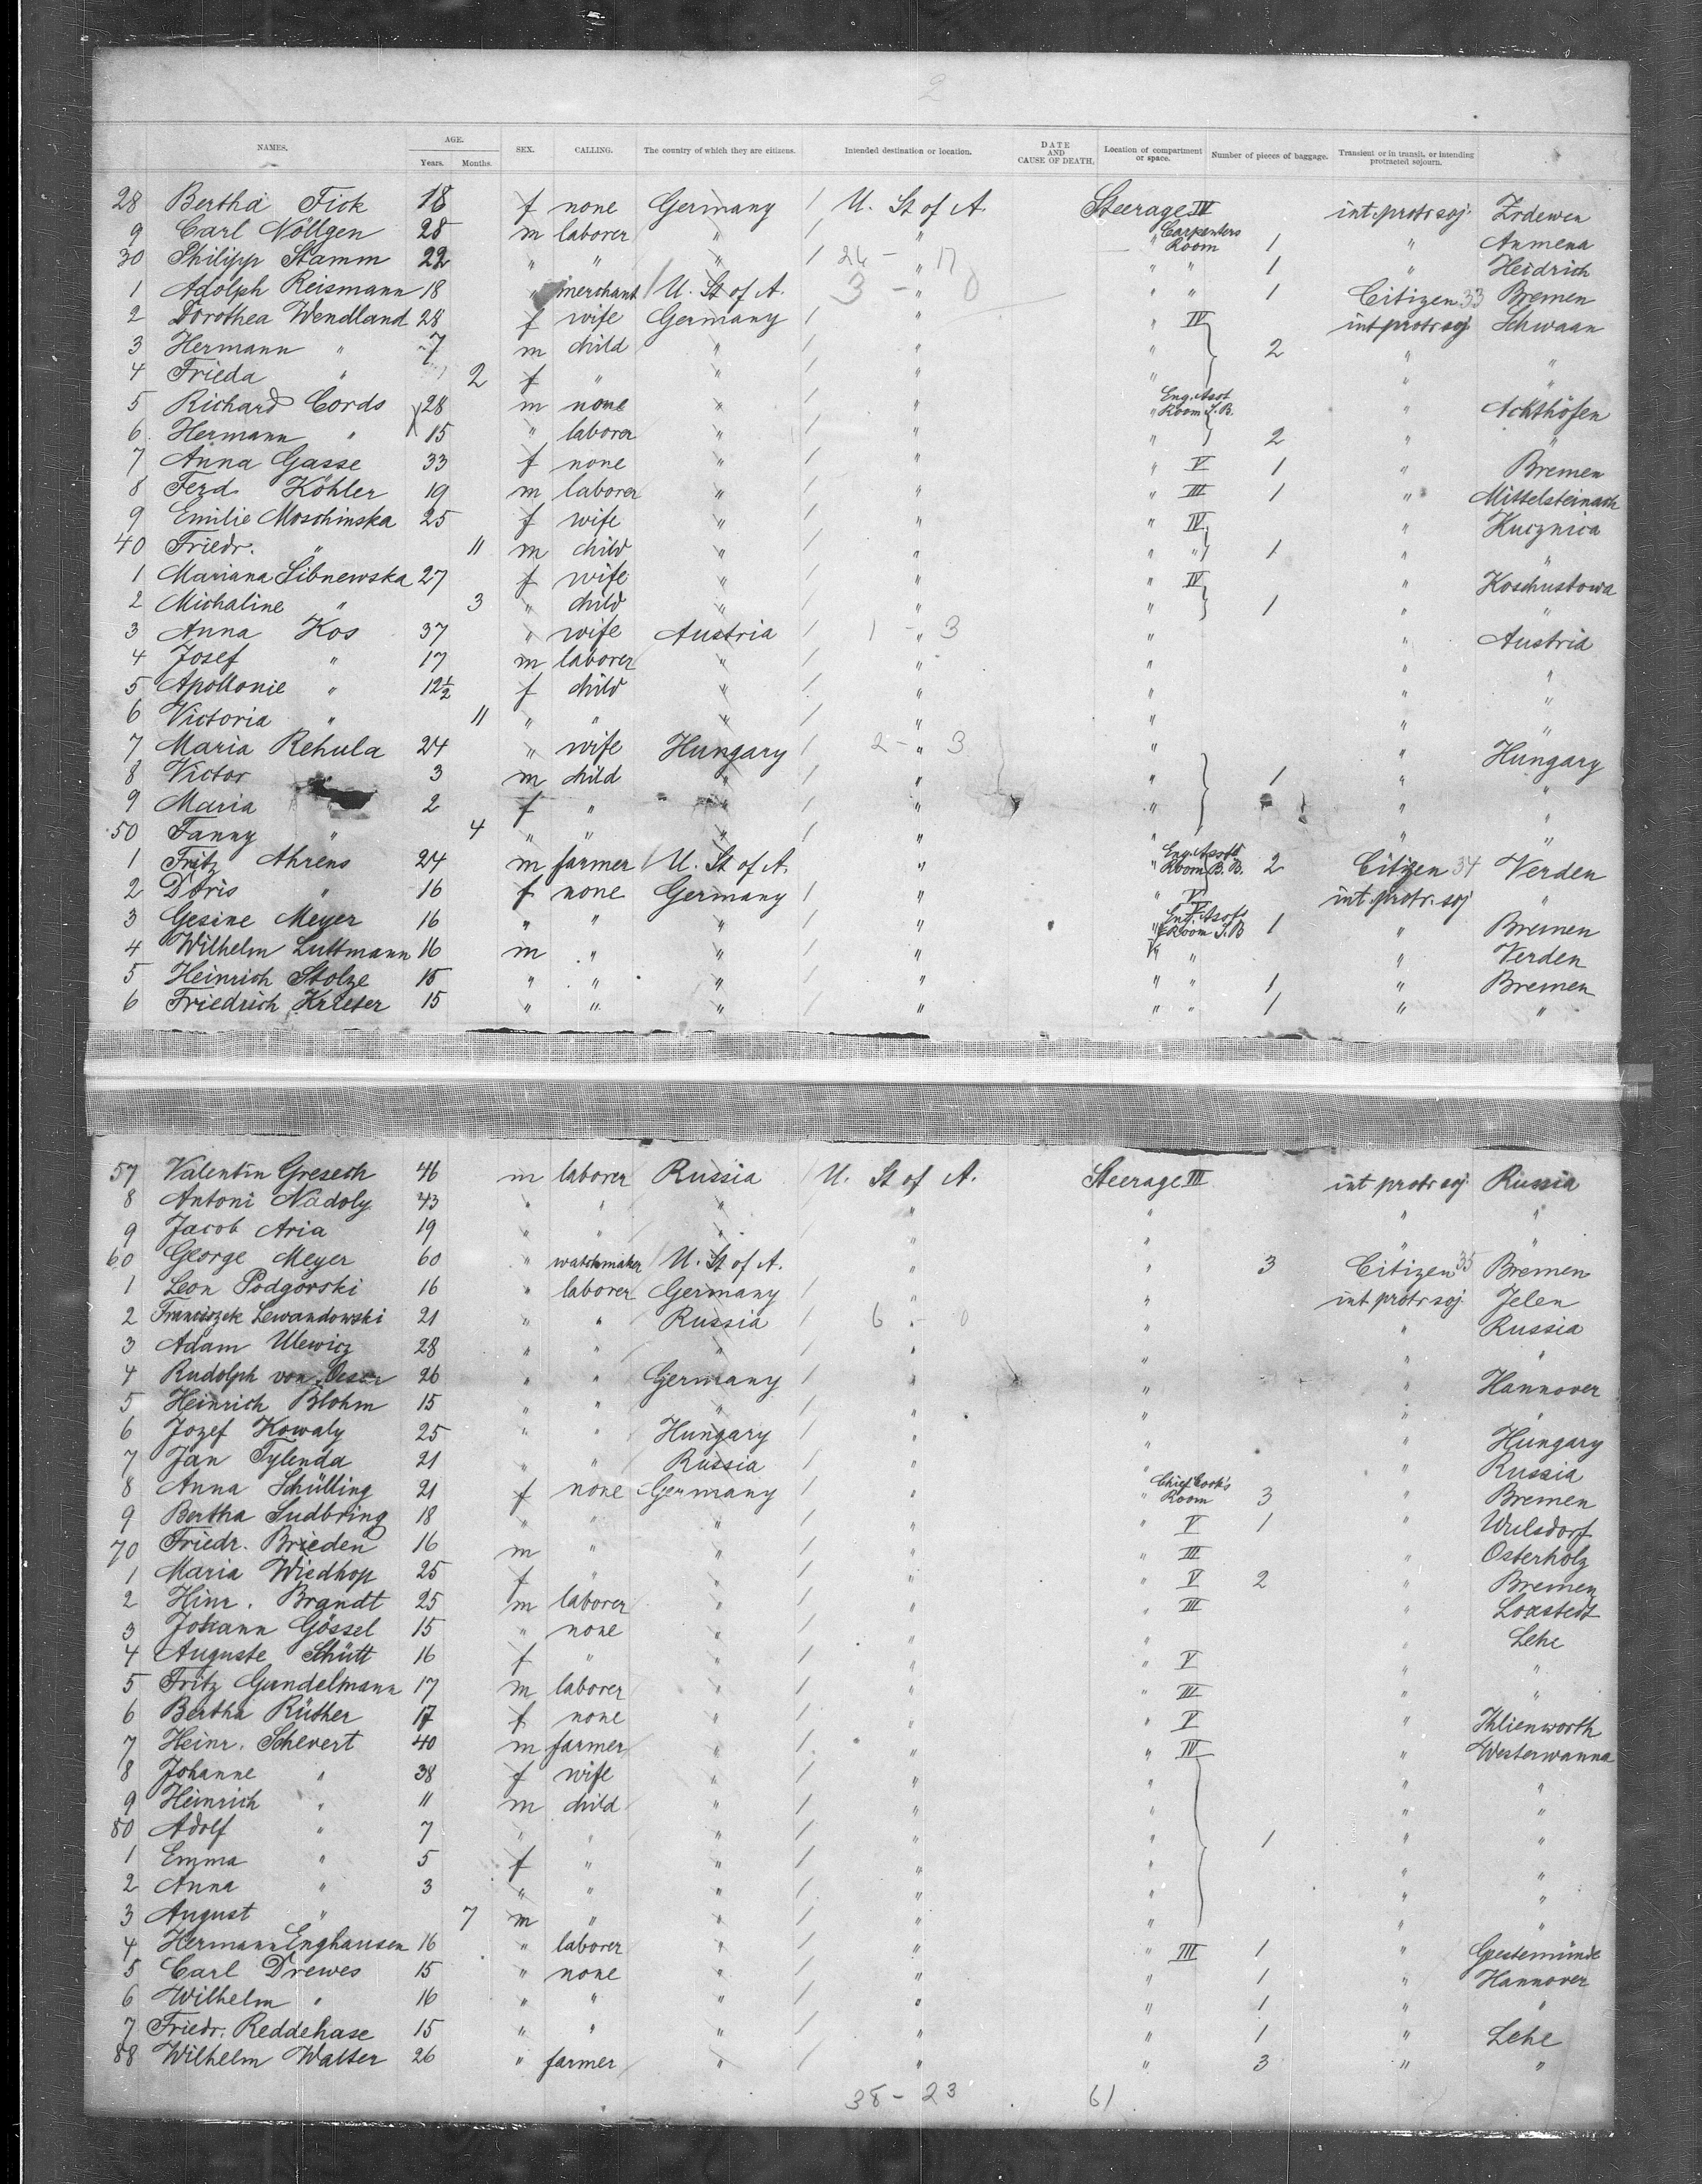 2
NAMES. AGE. Years. Months. SEX. CALLING. The country of which they are citizens. Intended destination or location. DATE AND CAUSE OF DEATH. Location of compartment or space. Number of pieces of baggage. Transient or in transit, or intending protracted sojourn.
28 Bertha Fick 18 f none Germany / U. St of A. Steerage IV int. protr soj. Zrdewen
9 Carl Nöllgen 28 m laborer " / " " Carpenters Room 1 " Anmena
30 Philipp Stamm 22 " " " / 24 - " 17 " " 1 " Heidrich
1 Adolph Reismann 18 " merchant / U. St of A. 3 - " 0 " " 1 Citizen 33 Bremen
2 Dorothea Wendland 28 f wife Germany / " " IV int protr soj Schwaan
3 Hermann " 7 m child " / " " 2 " "
4 Frieda " 2 f " " / " " " "
5 Richard Cords 28 m none " / " " Eng. Asst Room S.B. " Achthöfen
6 Hermann " 15 " laborer " / " " 2 " "
7 Anna Gasse 33 f none " / " " V 1 " Bremen
8 Ferd. Köhler 19 m laborer " / " " III 1 " Mittelsteinach
9 Emilie Moschinska 25 f wife " / " " IV " Kucznica
40 Friedr. " 11 m child " / " " " 1 " "
1 Mariana Libnewska 27 f wife " / " " IV " Koschustowa
2 Michaline " 3 " child " / " " 1 " "
3 Anna Kos 37 " wife Austria / 1 - " 3 " " Austria
4 Josef " 17 m laborer " / " " " "
5 Apollonie " 12½ f child " / " " " "
6 Victoria " 11 " " " / " " " "
7 Maria Rehula 24 " wife Hungary / 2 - " 3 " " Hungary
8 Victor 3 m child " / " " 1 " "
9 Maria 2 f " " / " " " "
50 Fanny " 4 " " " / " " " "
1 Fritz Ahrens 24 m farmer / U. St of A. " " Eng. Assts Room B.B. 2 Citizen 34 Verden
2 Doris " 16 f none Germany / " " V int. protr. soj "
3 Gesine Meyer 16 " " " / " " V Eng. Assts Room S.B 1 " Bremen
4 Wilhelm Luttmann 16 m " " / " " " " Verden
5 Heinrich Stolze 15 " " " / " " " 1 " Bremen
6 Friedrich Krieter 15 " " " / " " " 1 " "
57 Valentin Gresech 46 m laborer Russia / U. St of A. Steerage III int protr soj Russia
8 Antoni Nadoly 43 " " " / " " " "
9 Jacob Aria 19 " " " / " " " "
60 George Meyer 60 " watchmaker / U. St of A. " " 3 Citizen 35 Bremen
1 Leon Podgorski 16 " laborer Germany / " " int protr soj Jelen
2 Franciszek Lewandowski 21 " " Russia / 6 - 0 " " Russia
3 Adam Ulewicz 28 " " " / " " " "
4 Rudolph von Oesen 26 " " Germany / " " " Hannover
5 Heinrich Blohm 15 " " " / " " " "
6 Jozef Kowaly 25 " " Hungary / " " " Hungary
7 Jan Tylenda 21 " " Russia / " " " Russia
8 Anna Schülling 21 f none Germany / " " Chief Cook's Room 3 " Bremen
9 Bertha Sudbring 18 " " " / " " V 1 " Wulsdorf
70 Friedr. Brieden 16 m " " / " " III " Osterholz
1 Maria Wiedhop 25 f " " / " " V 2 " Bremen
2 Hinr. Brandt 25 m laborer " / " " III " Loxstedt
3 Johann Gössel 15 " none " / " " " Lehe
4 Auguste Schütt 16 f " " / " " V " "
5 Fritz Gundelmann 17 m laborer " / " " III " "
6 Bertha Rüther 17 f none " / " " V " Ihlienworth
7 Heinr. Schevert 40 m farmer " / " " IV " Westerwanna
8 Johanne " 38 f wife " / " " " "
9 Heinrich " 11 m child " / " " " "
80 Adolf " 7 " " " / " " 1 " "
1 Emma " 5 f " " / " " " "
2 Anna " 3 " " " / " " " "
3 August " 7 m " " / " " " "
4 Hermann Enghausen 16 " laborer " / " " III 1 " Geestemünde
5 Carl Drewes 15 " none " / " " 1 " Hannover
6 Wilhelm " 16 " " " / " " 1 " "
7 Friedr. Reddehase 15 " " " / " " 1 " Lehe
88 Wilhelm Walter 26 " farmer " / " " 3 " "
38 - 23 61